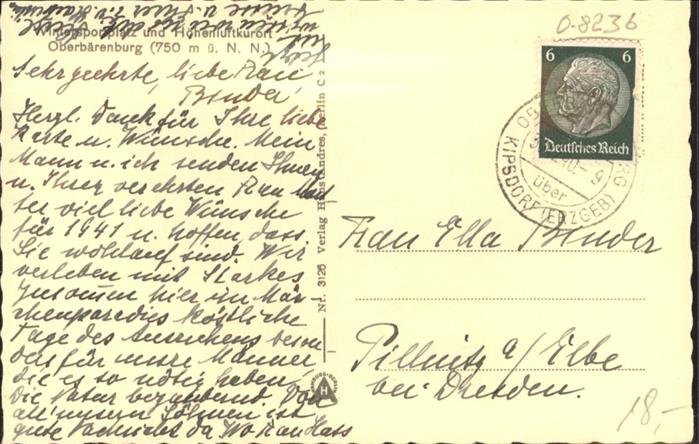 O-8236
Wintersportplatz und Höhenluftkurort
Oberbärenburg (750 m ü. N. N.)
Sehr geehrte, liebe Frau
Binder
Herzl. Dank für Ihre liebe
Karte u. Wünsche. Mein
Mann u. ich senden Ihnen
u. Ihrer verehrten Frau Mut
ter viel liebe Wünsche
für 1941 u. hoffen dass
Sie wohlauf sind. Wir
verleben mit Starkes
zusammen hier im Mär
chenparadies köstliche
Tage des Ausruhens beson
ders für unsre Männer
die es so nötig haben.
Die Natur bezaubernd. Von
all' unsern Söhnen ist
gute Nachricht da. Wo
Nr. 3125 Verlag
6 6
Deutsches Reich
über
KIPSDORF (ERZGEB)
Frau Ella Binder
Pillnitz a/Elbe
bei Dresden.
H
18,-